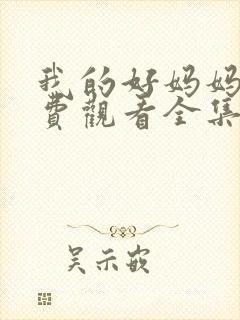 我的好妈妈
费觀看全集
吴示嵌